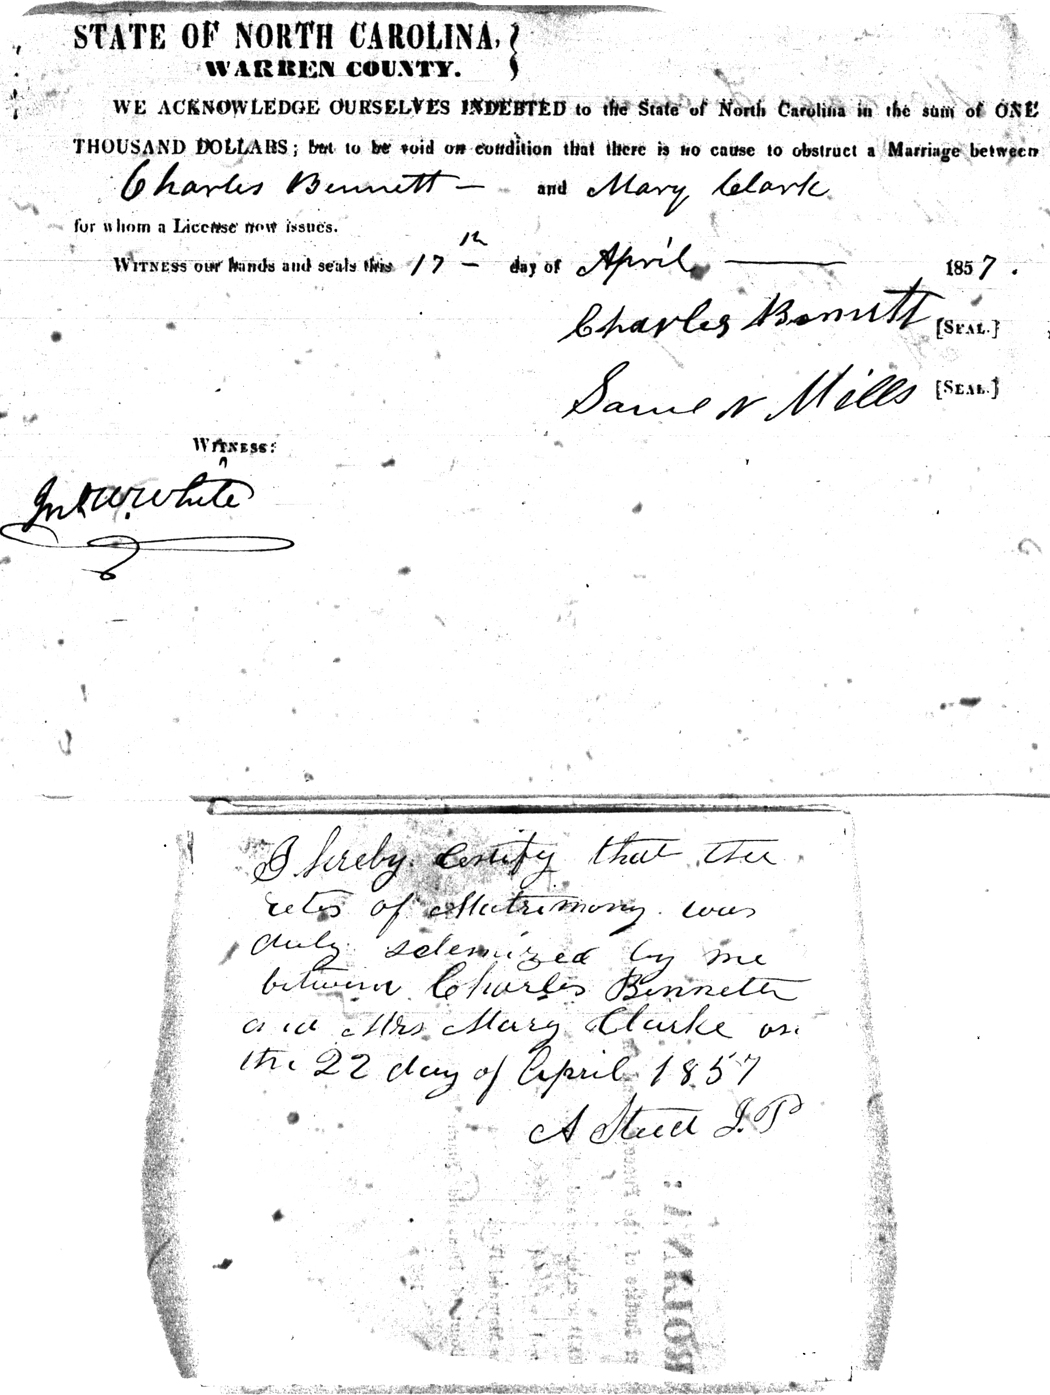 STATE OF NORTH CAROLINA,
WARREN COUNTY.
WE ACKNOWLEDGE OURSELVES INDEBTED to the State of North Carolina in the sum of ONE
THOUSAND DOLLARS; but to be void on condition that there is no cause to obstruct a Marriage between
Charles Bennett — and Mary Clark
for whom a License now issues.
WITNESS our hands and seals this 17th day of April — 1857.
Charles Bennett [SEAL.]
Saml N Mills [SEAL.]
WITNESS:
Jno W. White
I hereby Certify that the
rites of Matrimony was
duly solemized by me
between Charles Bennett
and Mrs Mary Clarke on
the 22 day of April 1857
A Steed J.P